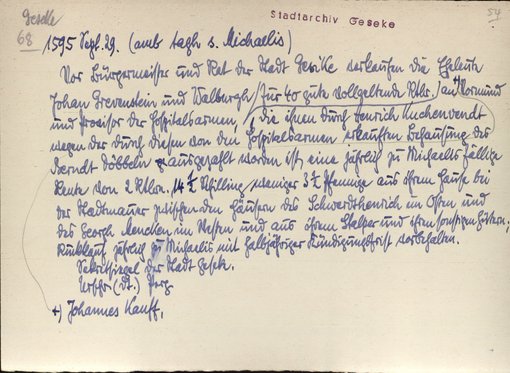 Geseke
68
Stadtarchiv Geseke
54
1595 Sept. 29. (amb tagh s. Michaelis)
Vor Bürgermeister und Rat der Stadt Geseke verkaufen die Eheleute
Johan Grevenstein und Walburgh für 40 gute vollgeltende Rtlr. an +) Vormund
und Provisor der Hospitalsarmen, die ihnen durch Henrich Kuchenvendt
wegen der durch diesen von den Hospitalsarmen erkauften Behausung des
Berndt Döbbeln ausgezahlt worden ist, eine jährlich zu Michaelis fällige
Rente von 2 Rtlr. 14 ½ Schilling weniger 3 ½ Pfennige aus ihrem Hause bei
der Stadtmauer zwischen den Häusern des Schwerdthenrich im Osten und
des Georgh Mencken im Westen und aus ihrem und ihren sonstigen Gütern.
Rückkauf jährlich zu Michaelis mit halbjähriger Kündigungsfrist vorbehalten.
Sekretsiegel der Stadt Geseke.
Urschr. (dt.) Perg.
+) Johannes Kauff,